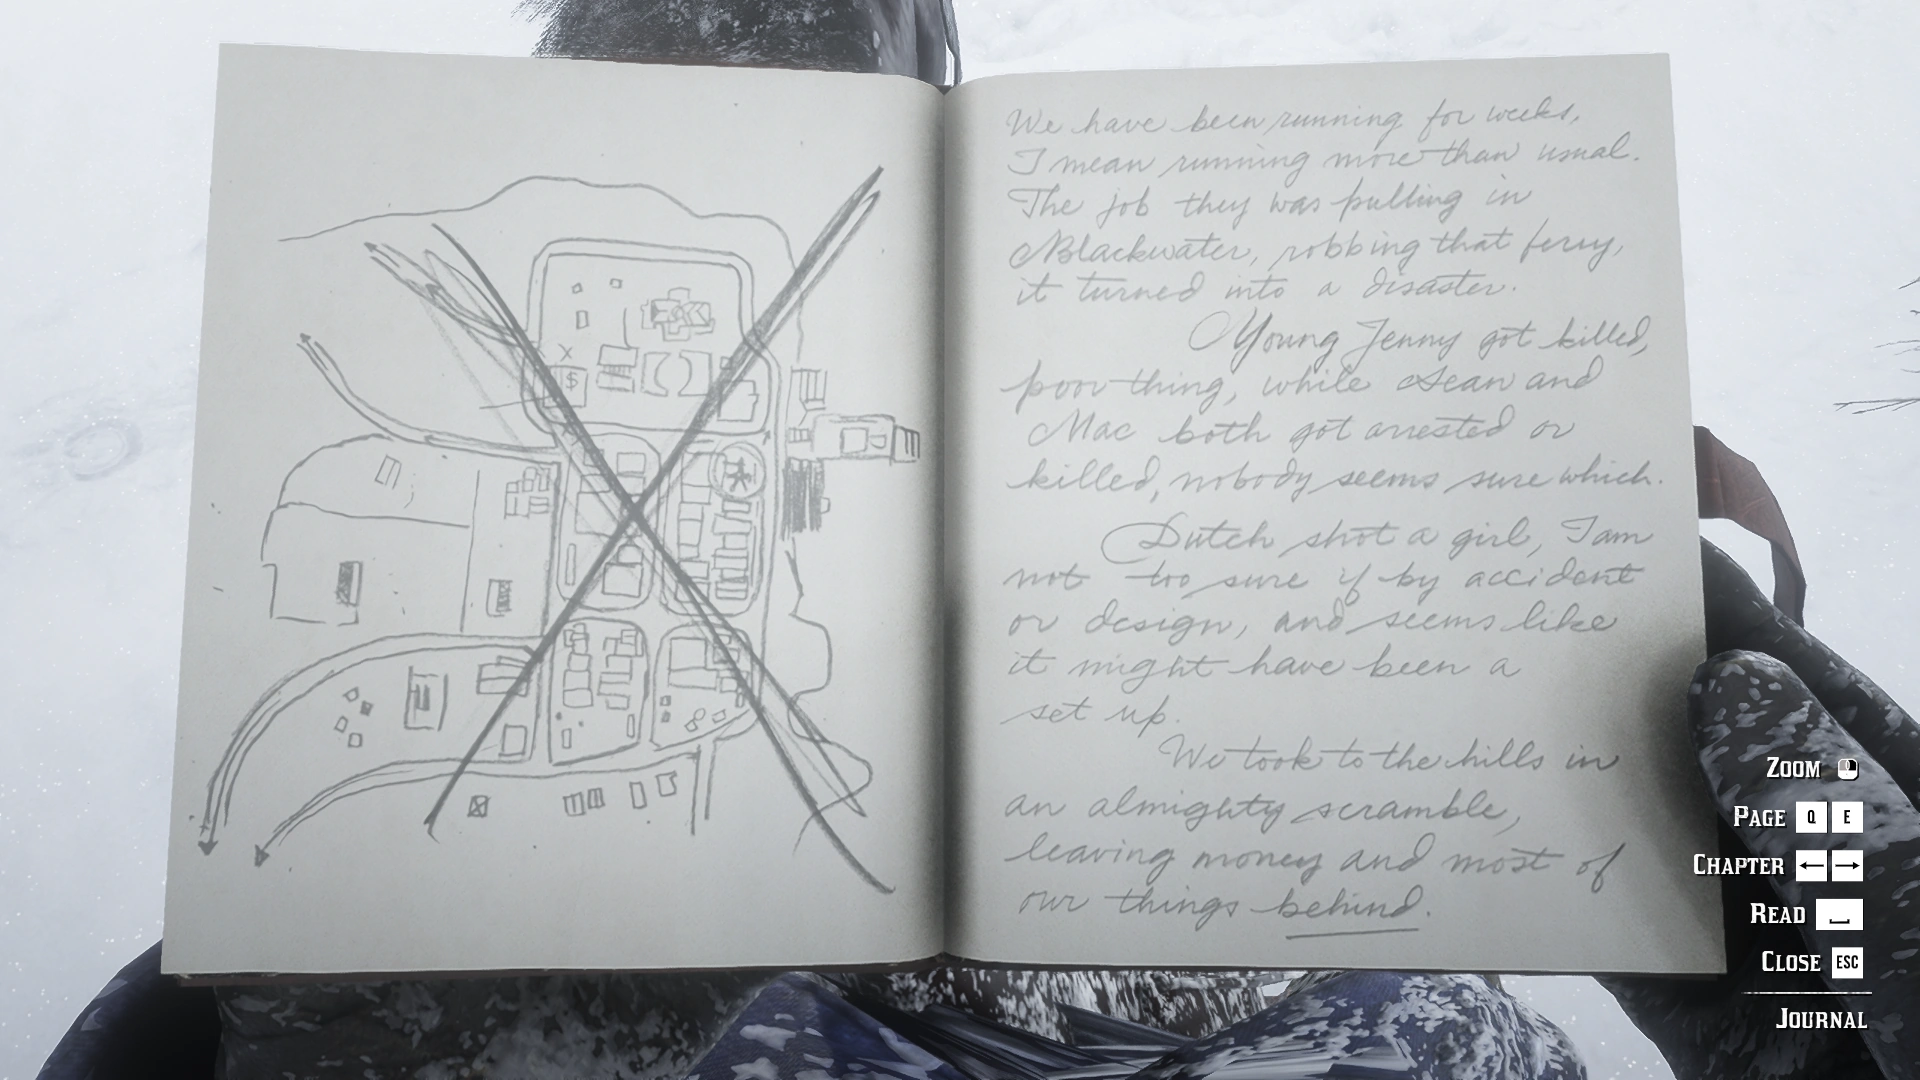 We have been running for weeks,
I mean running more than usual.
The job they was pulling in
Blackwater, robbing that ferry,
it turned into a disaster.
Young Jenny got killed,
poor thing, while Sean and
Mac both got arrested or
killed, nobody seems sure which.
Dutch shot a girl, I am
not too sure if by accident
or design, and seems like
it might have been a
set up.
We took to the hills in
an almighty scramble,
leaving money and most of
our things behind.
X
$
ZOOM
PAGE Q E
CHAPTER ← →
READ
CLOSE ESC
JOURNAL